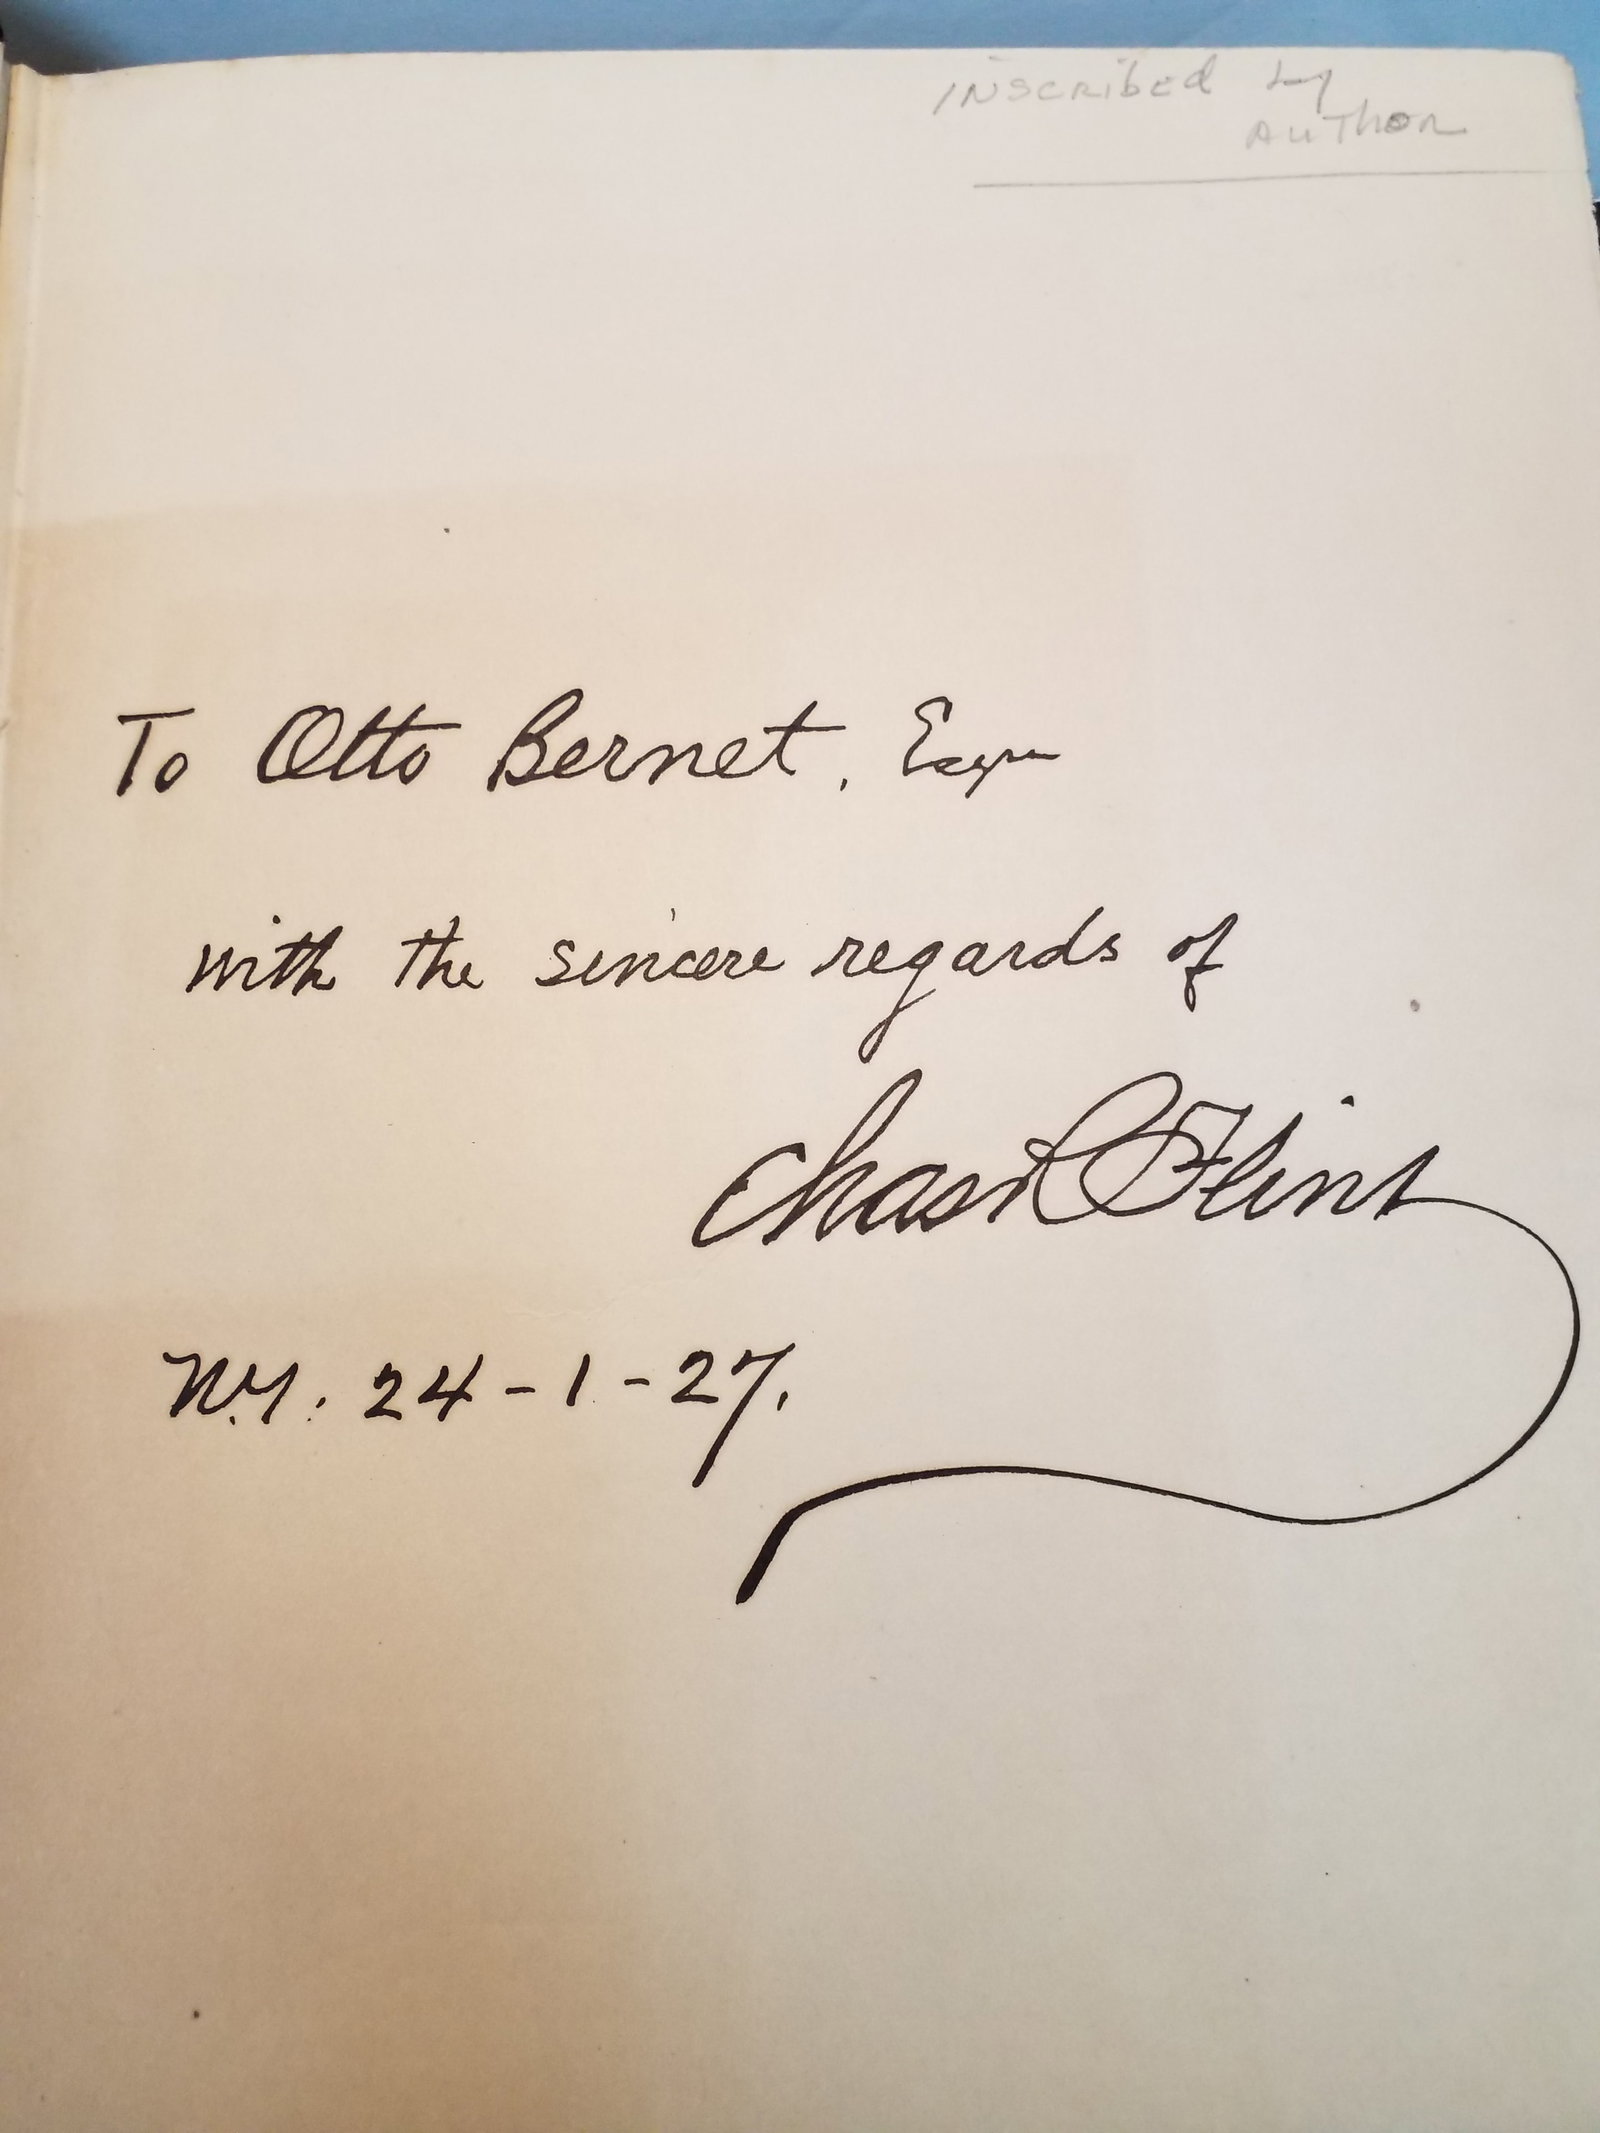 Inscribed by
Author
To Otto Bernet, Esqre
with the sincere regards of
Chas R Flint
N.Y. 24-1-27.